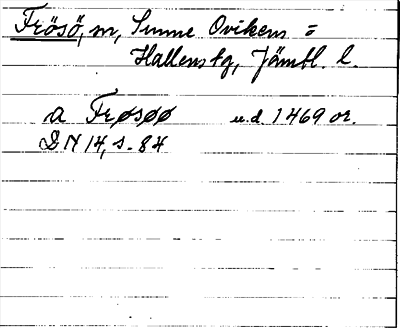 Frösö, m, Sunne Ovikens =
Hallens tg, Jämtl. l.
a Frøsøø u.d. 1469 or.
DN 14, s. 84